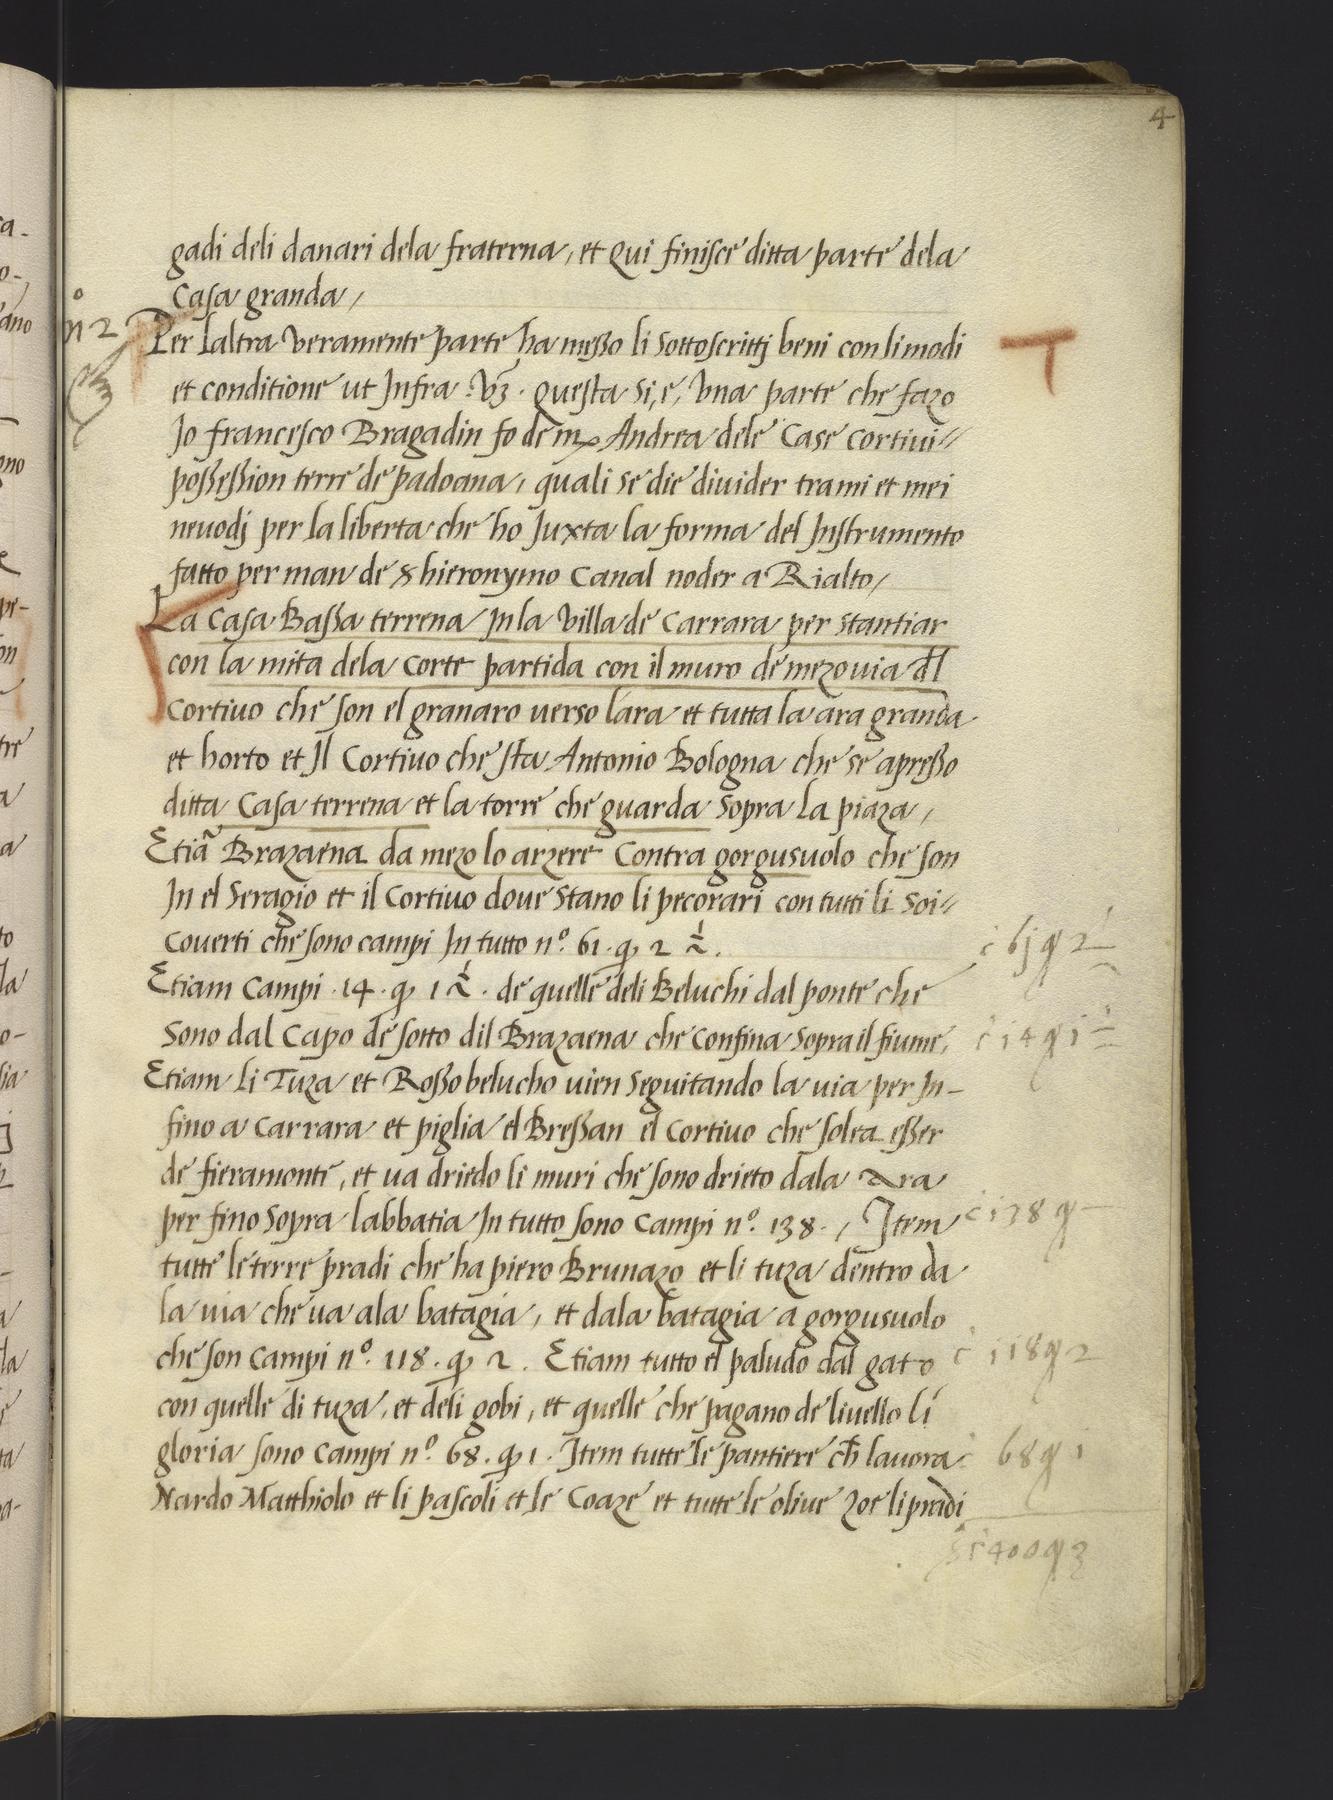 4
gadi deli danari dela fraterna, et Qui finisce ditta parte dela
Casa granda /
nº 2
Per Laltra veramente parte ha messo li sottoscrittj beni con li modi
T
et conditione ut Infra. Vz. Questa si, e, Vna parte che fazo
Io francesco Bragadin fo de mr Andrea dele Case cortiui //
possession terre de padoana, quali se die diuider tra mi et mei
neuodj per la liberta che ho Juxta la forma del Instrumento
fatto per man de S hieronymo Canal noder a Rialto /
La Casa Bassa terrena In la Villa de Carrara per stantiar
con la mita dela Corte partida con il muro de mezo uia dl
Cortiuo che son el granaro uerso l'ara et tutta la ara granda
et horto et Il Cortiuo che sta Antonio Bologna che se apresso
ditta Casa terrena et la torre che guarda sopra la piaza,
Etiã Brazaena da mezo lo arzere Contra gorgusuolo che son
In el Seragio et il Cortiuo doue stano li pecorari con tutti li Soi //
Couerti che sono campi In tutto nº. 61. q 2 ½.
c 61 q 2 ½
Etiam Campi. 14. q 1 ½. de quelle deli Beluchi dal ponte che
Sono dal Capo de sotto dil Brazaena che Confina sopra il fiume,
c 14 q 1 ½
Etiam Li Tuza et Rosso belucho uien seguitando la uia per In-
fino a Carrara et piglia el Bressan el Cortiuo che solea esser
de fieramonte, et ua driedo li muri che sono drieto dala Ara
per fino sopra l'abbatia In tutto sono Campi nº. 138. , Item
c 138 q -
tutte le terre pradi che ha piero Brunazo et li tuza dentro da
la uia che ua ala batagia, et dala batagia a gorgusuolo
che son Campi nº. 118. q 2. Etiam tutto el paludo dal gato
c 118 q 2
con quelle di tuza, et deli gobi, et quelle che pagano de liuello li
gloria sono Campi nº. 68. q 1. Item tutte le pantiere ch lauora
c 68 q 1
Nardo Matthiolo et li pascoli et le Coaze et tutte le oliue zoe li pradi
c 400 q 3